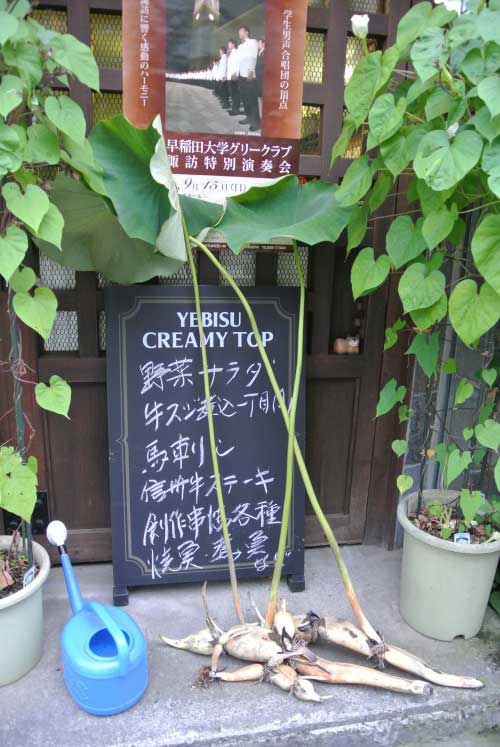 諏訪に響く感動のハーモニー
学生男声合唱団の頂点
早稲田大学グリークラブ
諏訪特別演奏会
9月15日(日)
YEBISU
CREAMY TOP
野菜サラダ
牛スジ煮込
馬刺し
信州牛ステーキ
創作串焼各種